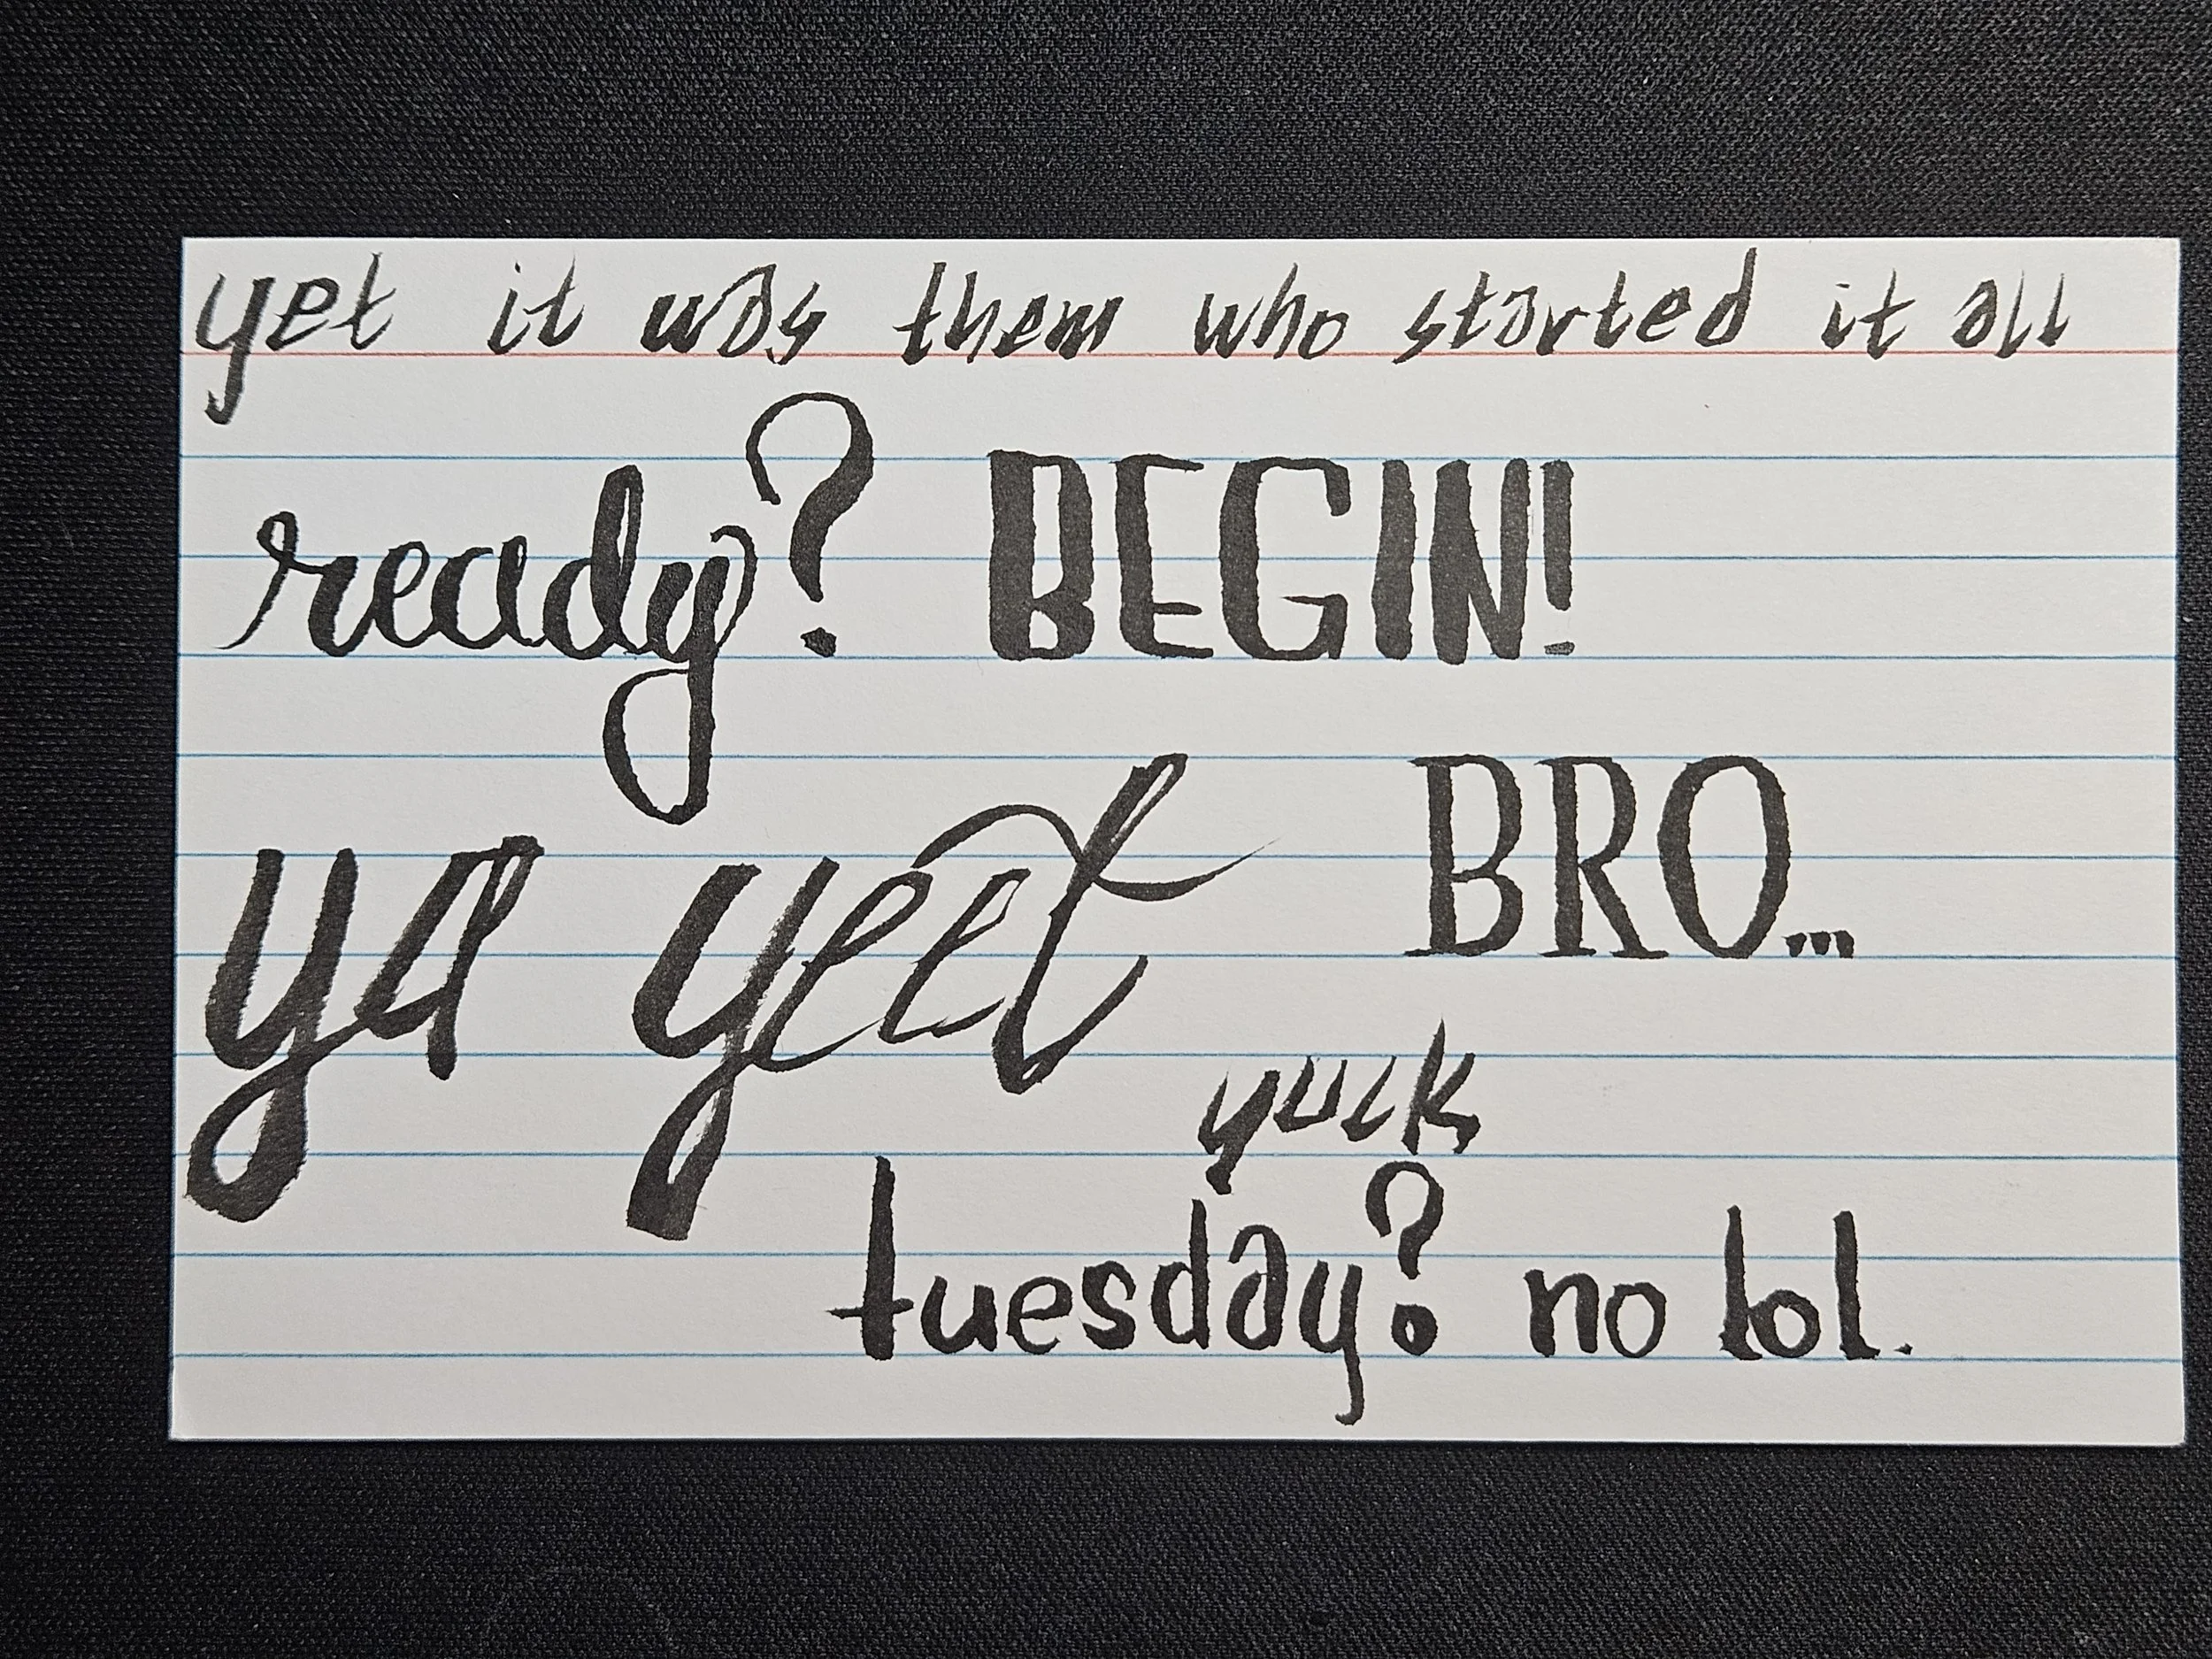 yet it was them who started it all
ready? BEGIN!
ya yeet BRO...
yuck
tuesday? no lol.